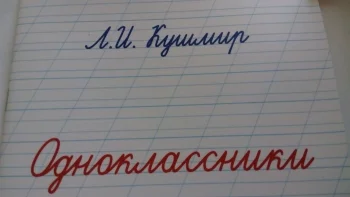 Л.И. Кушмир
Одноклассники